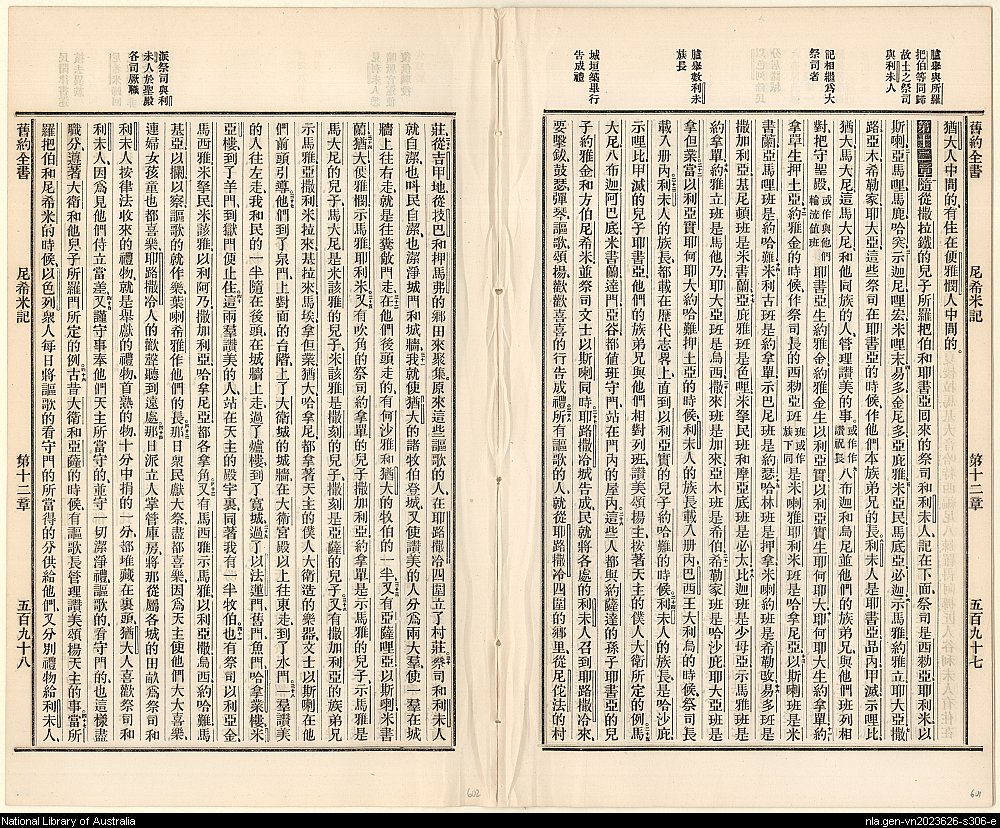 臚舉與所羅
把伯等同歸
故土之祭司
與利未人
記相繼爲大
祭司者
臚舉數利未
族長
城垣築畢行
告成禮
舊約全書 尼希米記 第十二章 五百九十七
猶大人中間的有住在便雅憫人中間的
第十二章隨從撒拉鐵的兒子所羅把伯和耶書亞囘來的祭司和利未人記在下面祭司是西勑亞耶利米以
斯喇亞瑪哩馬鹿哈突示迦尼哩宏米哩末易多金尼多亞庇雅米亞民馬底亞必迦示馬雅約雅立耶大亞撒
路亞木希勒家耶大亞這些祭司在耶書亞的時候作他們本族弟兄的長利未人是耶書亞品內甲滅示哩比
猶大馬大尼這馬大尼和他同族的人管理讚美的事或作作讚祝長八布迦和烏尼並他們的族弟兄與他們班列相
對把守聖殿或作與他們輪流値班耶書亞生約雅金約雅金生以利亞實以利亞實生耶何耶大耶何耶大生約拿單約
拿單生押土亞約雅金的時候作祭司長的西勑亞班班或作族下同是米喇雅耶利米班是哈拿尼亞以斯喇班是米
書蘭亞馬哩班是約哈難米利古班是約拿單示巴尼班是約瑟哈林班是押拿米喇約班是希勒改易多班是
撒加利亞基尼頓班是米書蘭亞庇雅班是色哩米拏民班和摩亞底班是必太比迦班是少母亞示馬雅班是
約拿單約雅立班是馬他乃耶大亞班是烏西撒來班是加來亞木班是希伯希勒家班是哈沙庇耶大亞班是
拿但業當以利亞實耶何耶大約哈難押土亞的時候利未人的族長載入册內巴西王大利烏的時候祭司長
載入册內利未人的族長都載在歷代志畧上直到以利亞實的兒子約哈難的時候利未人的族長是哈沙庇
示哩比甲滅的兒子耶書亞他們的族弟兄與他們相對列班讚美頌揚主按著天主的僕人大衛所定的例馬
大尼八布迦阿巴底米書蘭達門亞谷都値班守門站在門內的屋內這些人都與約薩達的孫子耶書亞的兒
子約雅金和方伯尼希米並祭司文士以斯喇同時耶路撒冷城告成民就將各處的利未人召到耶路撒冷來
要擊鈸鼓瑟彈琴謳歌頌揚歡歡喜喜的行告成禮所有謳歌的人就從耶路撒冷四圍的鄕里從尼佗法的村
派祭司與利
未人於聖殿
各司厥職
莊從吉甲地從技巴和押馬弗的鄕田來聚集原來這些謳歌的人在耶路撒冷四圍立了村莊祭司和利未人
就自潔也呌民自潔也潔淨城門和城牆我就使猶大的諸牧伯登城又使讚美的人分爲兩大羣使一羣在城
牆上往右走就是往糞廠門走在他們後頭走的有何沙雅和猶大的牧伯的一半又有亞薩哩亞以斯喇米書
蘭猶大便雅憫示馬雅耶利米又有吹角的祭司約拿單的兒子撒加利亞約拿單是示馬雅的兒子示馬雅是
馬大尼的兒子馬大尼是米該雅的兒子米該雅是撒刻的兒子撒刻是亞薩的兒子又有撒加利亞的族弟兄
示馬雅亞撒利米拉來基拉來馬埃拿但業猶大哈拿尼都拿著天主的僕人大衛造的樂器文士以斯喇在他
們前頭引導他們到了泉門上對面的台階上了大衛城的城牆在大衛宮殿以上往東走到了水門一羣讚美
的人往左走我和民的一半隨在後頭在城牆上走過了爐樓到了寬城過了以法蓮門舊門魚門哈拿業樓米
亞樓到了羊門到獄門便止住這兩羣讚美的人站在天主的殿宇裏同著我有一半牧伯也有祭司以利亞金
馬西雅米拏民米該雅以利阿乃撒加利亞哈拿尼亞都各拿角又有馬西雅示馬雅以利亞撒烏西約哈難馬
基亞以攔以察謳歌的就作樂葉喇希雅作他們的長那日衆民獻大祭盡都喜樂因爲天主使他們大大喜樂
連婦女孩童也都喜樂耶路撒冷人的歡聲聽到遠處那日派立人掌管庫房將那從屬各城的田畝爲祭司和
利未人按律法收來的禮物就是舉獻的禮物首熟的物十分中捐的一分都堆藏在裏頭猶大人喜歡祭司和
利未人因爲見他們侍立當差又謹守事奉他們天主所當守的並守一切潔淨禮謳歌的看守門的也這樣盡
職分遵著大衛和他兒子所羅門所定的例古昔大衛和亞薩的時候有謳歌長管理讚美頌揚天主的事當所
羅把伯和尼希米的時候以色列衆人每日將謳歌的看守門的所當得的分供給他們又分別禮物給利未人
舊約全書 尼希米記 第十二章 五百九十八
602
601
National Library of Australia
nla.gen-vn2023626-s306-e